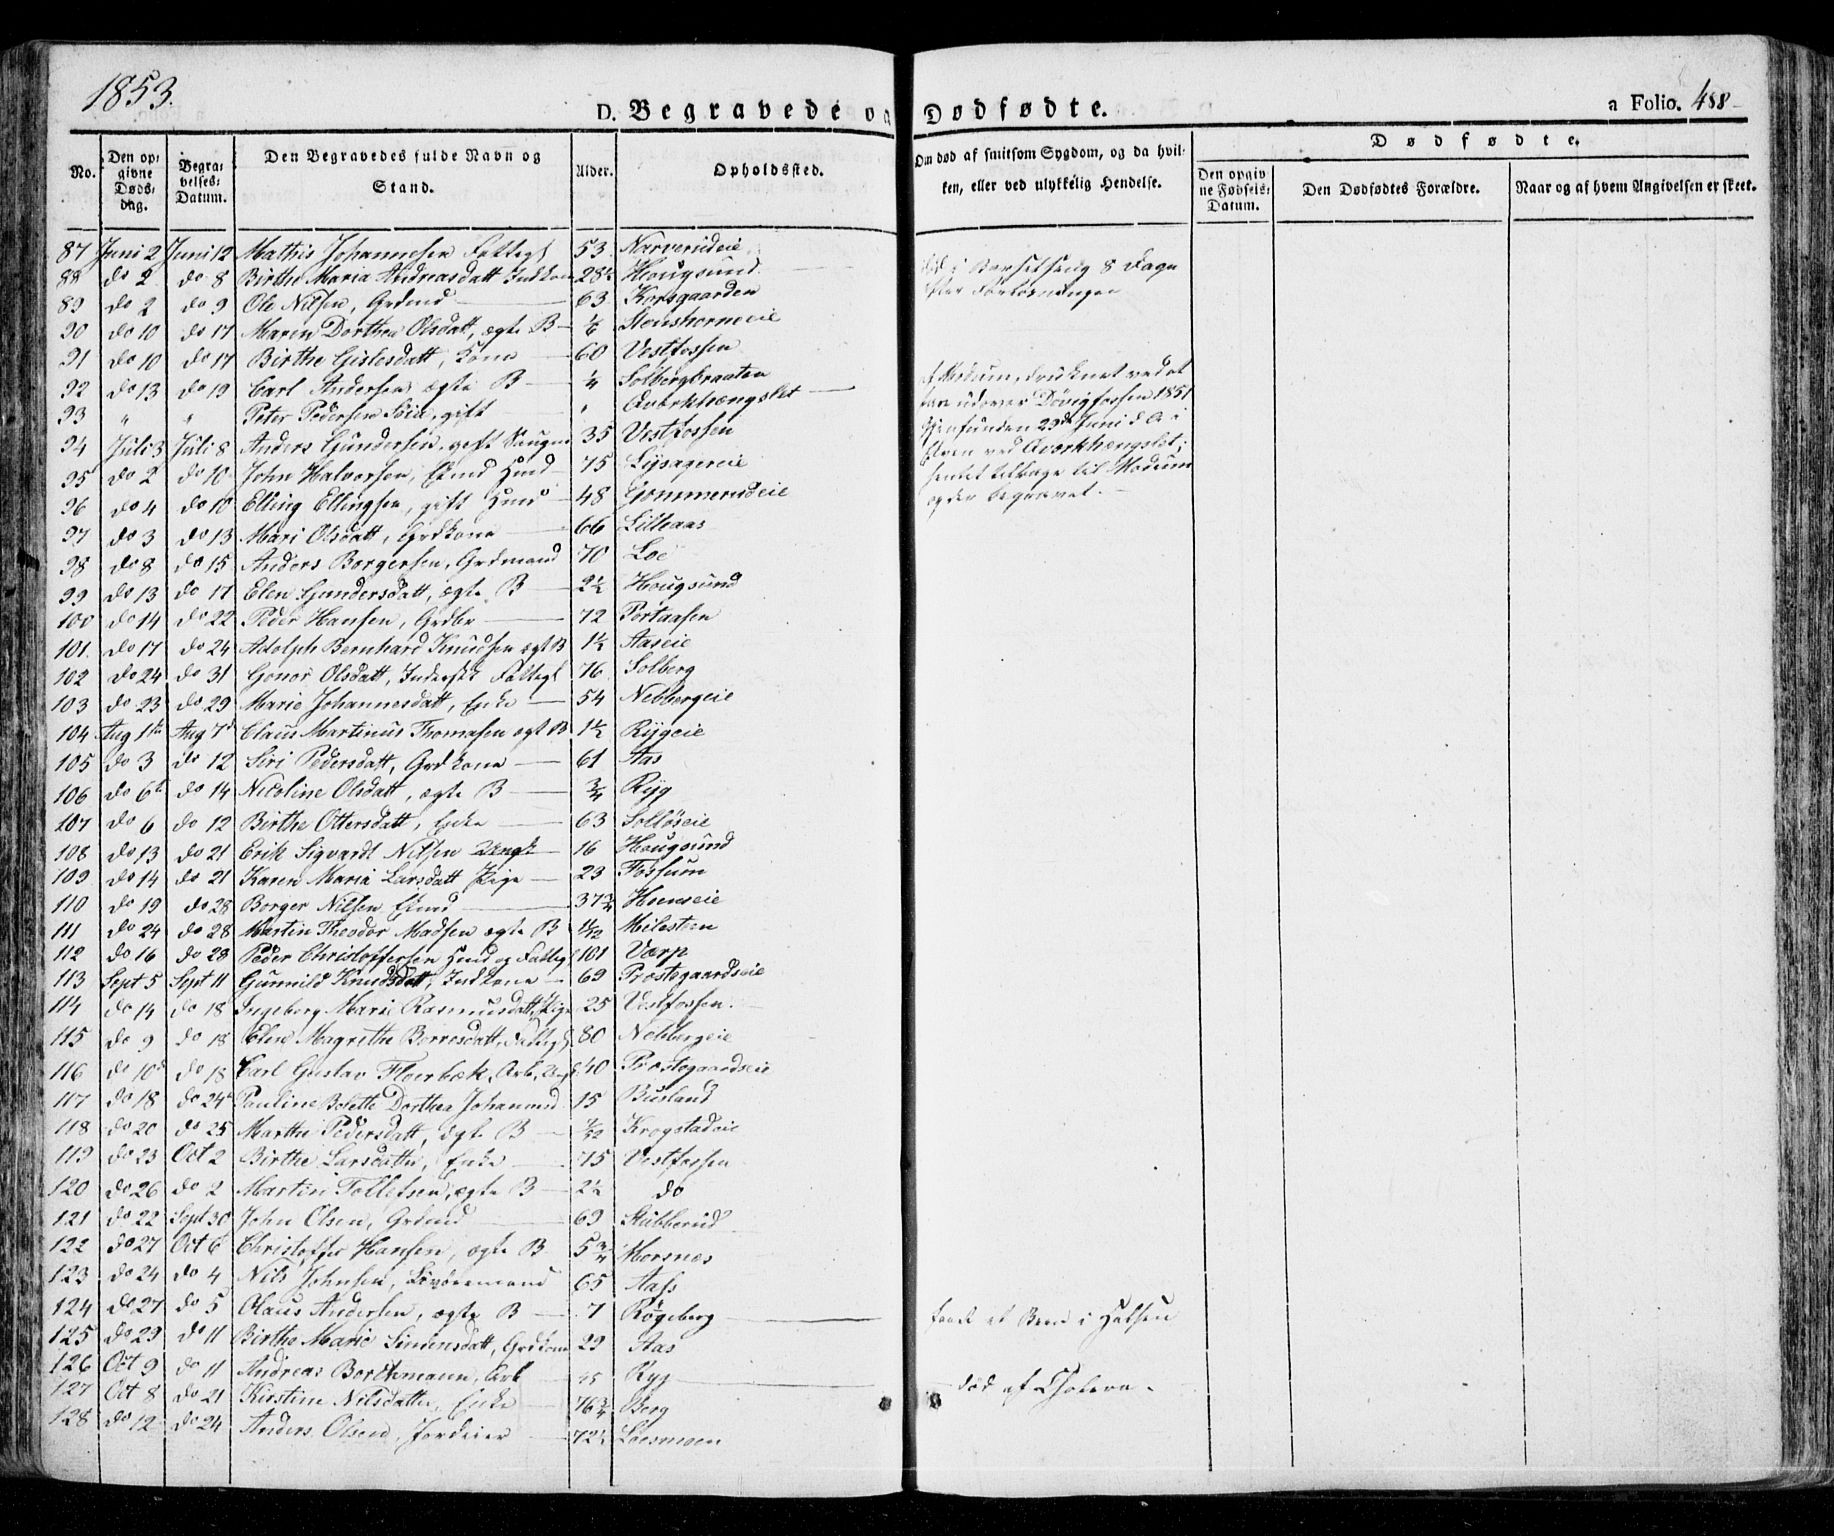 1853.
D. Begravede og Dødfødte.
a Folio. 488
No. Den opgivne Døds-dag. Begravelses-Datum. Den Begravedes fulde Navn og Stand. Alder. Opholdssted. Om død af smitsom Sygdom, og da hvilken, eller ved ulykkelig Hendelse. Dødfødte.
Den opgivne Fødsels-Datum. Den Dødfødtes Forældre. Naar og af hvem Angivelsen er skeet.
87 Juni 2 Juni 12 Mathis Johannesen Fattigl 53 Narverudeie
88 do 2 do 8 Birthe Maria Andreasdatt Indkone 28½ Hougsund død i Barselseng 8 Dage
efter Forløsningen
89 do 2 do 9 Ole Nilsen, Grdmd 63 Korsgaarden
90 do 10 do 17 Maren Dorthea Olsdatt, ægte B ⅙ Stenshorneeie
91 do 10 do 17 Birthe Gislesdatt, Kone 60 Vestfossen
92 do 13 do 19 Carl Andersen ægte B ¼ Solbergbraaten
93 " " Peter Pedersen gift " Averkhængslet af Modum, druknet ved at
fare udover Døvigfossen 1851
Gjenfunden 29de Juni d A i
Elven ved Averkhængslet;
sendt tilbage til Modum
og der begravet.
94 Juli 3 Juli 8 Anders Gundersen, gift 35 Vestfossen
95 do 2 do 10 John Halvorsen, Hmd 75 Lysagereie
96 do 4 do 10 Elling Ellingsen, gift Hmd 48 Gommerudeie
97 do 3 do 13 Mari Olsdatt, Grdkone 66 Lilleaas
98 do 8 do 15 Anders Borgersen, Grdmand 70 Loe
99 do 13 do 17 Elen Gundersdatt, ægte B 2½ Hougsund
100 do 14 do 22 Peder Hansen, Grdbr 72 Portaasen
101 do 17 do 24 Adolph Bernhard Knudsen ægt B 1½ Aaseie
102 do 24 do 31 Gonor Olsdatt, Fattigl 76 Solberg
103 do 23 do 29 Marie Johannesdatt, Enke 54 Nebbergeie
104 Aug 1ste Aug 7de Claus Martinus Thomasen ægt B 1½ Rygeie
105 do 3 do 12 Siri Pedersdatt, Grdkone 61 Aas
106 do 6te do 14 Nicoline Olsdatt, ægte B ¾ Ryg
107 do 6 do 12 Birthe Ottersdatt, Enke 63 Solløseie
108 do 13 do 21 Erik Sigvardt Nilsen 16 Hougsund
109 do 14 do 21 Karen Maria Larsdatt Pige 23 Fossum
110 do 19 do 28 Borger Nilsen 37¾ Hoenseie
111 do 24 do 28 Martin Theodor Madsen ægte B 1/12 Milesteen
112 do 16 do 28 Peder Christoffersen Hmd og Fattigl 101 Varp
113 Sept 5 Sept 11 Gunnild Knudsdatt, Indkone 69 Præstegaardseie
114 do 14 do 18 Ingeborg Marie Rasmusdatt, Pige 25 Vestfossen
115 do 9 do 18 Elen Magrethe Borresdatt, Fattigl 80 Nebbergeie
116 do 10de do 18 Carl Gustav Floerbæk, Arb, 40 Præstegaardseie
117 do 18 do 24de Pauline Bolette Dorthea Johannesd 15 Busland
118 do 20 do 25 Marthe Pedersdatt, ægte B 7/12 Krogstadeie
119 do 23 Oct 2 Birthe Larsdatter, Enke 75 Vestfossen
120 do 26 do 2 Martin Tollefsen, ægte B 2½ do
121 do 22 Sept 30 John Olsen, Grdmd 69 Stubberud
122 do 27 Oct 6 Christoffer Hansen, ægte B 5¾ Horsnes
123 do 24 do 4 Nils Johnsen, Livøremand 65 Aass
124 do 27 do 5 Olaus Andersen, ægte B 7 Røgeberg fandt et Been i Halsen
125 do 29 do 11 Birthe Marie Simensdatt, Grdkone 29 Aas
126 Oct 9 do 11 Andreas Borchmann, Arb Ryg død af Cholera.
127 Oct 8 do 21 Kirstine Nilsdatter, Enke 76¾ Berg
128 do 12 do 24 Anders Olsen, Jordeier 72½ Loesmoen